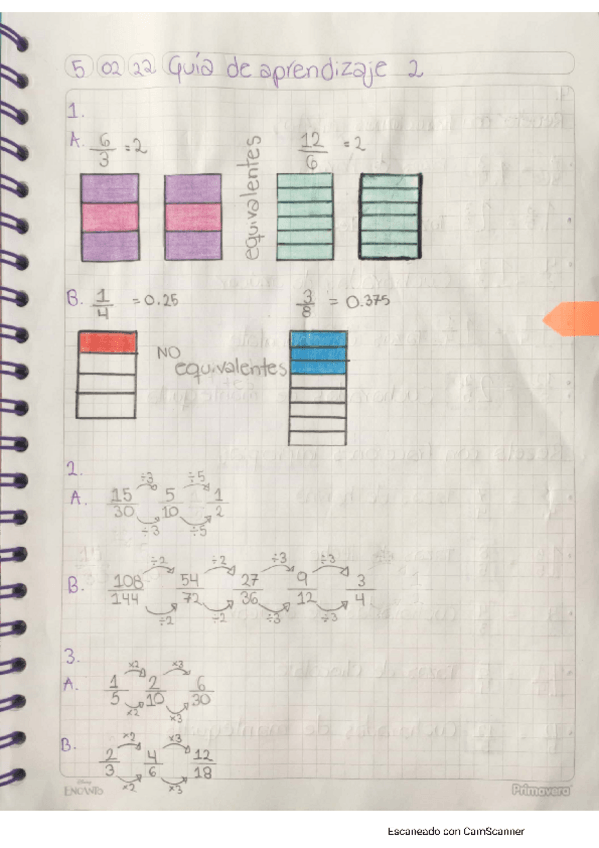 5 02 22 Guía de aprendizaje 2
1.
A. 6/3 = 2
equivalentes
12/6 = 2
B. 1/4 = 0.25
NO
equivalentes
3/8 = 0.375
2.
÷3 ÷5
A. 15/30 5/10 1/2
÷3 ÷5
÷2 ÷2 ÷3 ÷3
B. 108/144 54/72 27/36 9/12 3/4
÷2 ÷2 ÷3 ÷3
3.
x2 x3
A. 1/5 2/10 6/30
x2 x3
x2 x3
B. 2/3 4/6 12/18
x2 x3
Disney
ENCANTO
Primavera
Escaneado con CamScanner